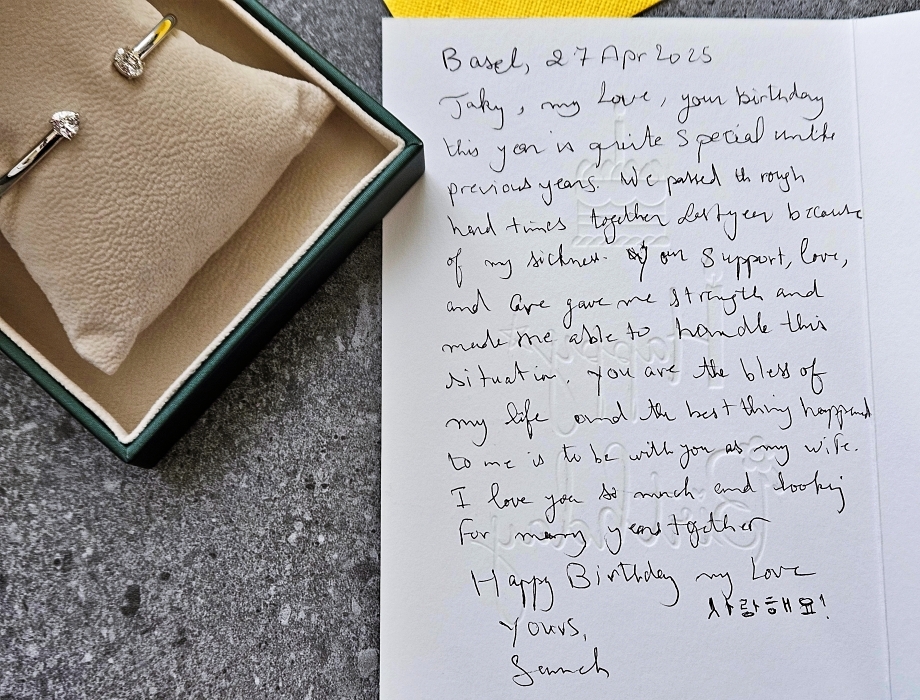 Basel, 27 Apr 2025
Jaky, my Love, your birthday
this year is quite special unlike
previous years. We passed through
hard times together last year because
of my sickness. your support, love,
and Care gave me strength and
made me able to handle this
situation. you are the bless of
my life and the best thing happened
to me is to be with you as my wife.
I love you so much and looking
For many years together
Happy Birthday my Love
사랑해요!
Yours,
Happy
Birthday